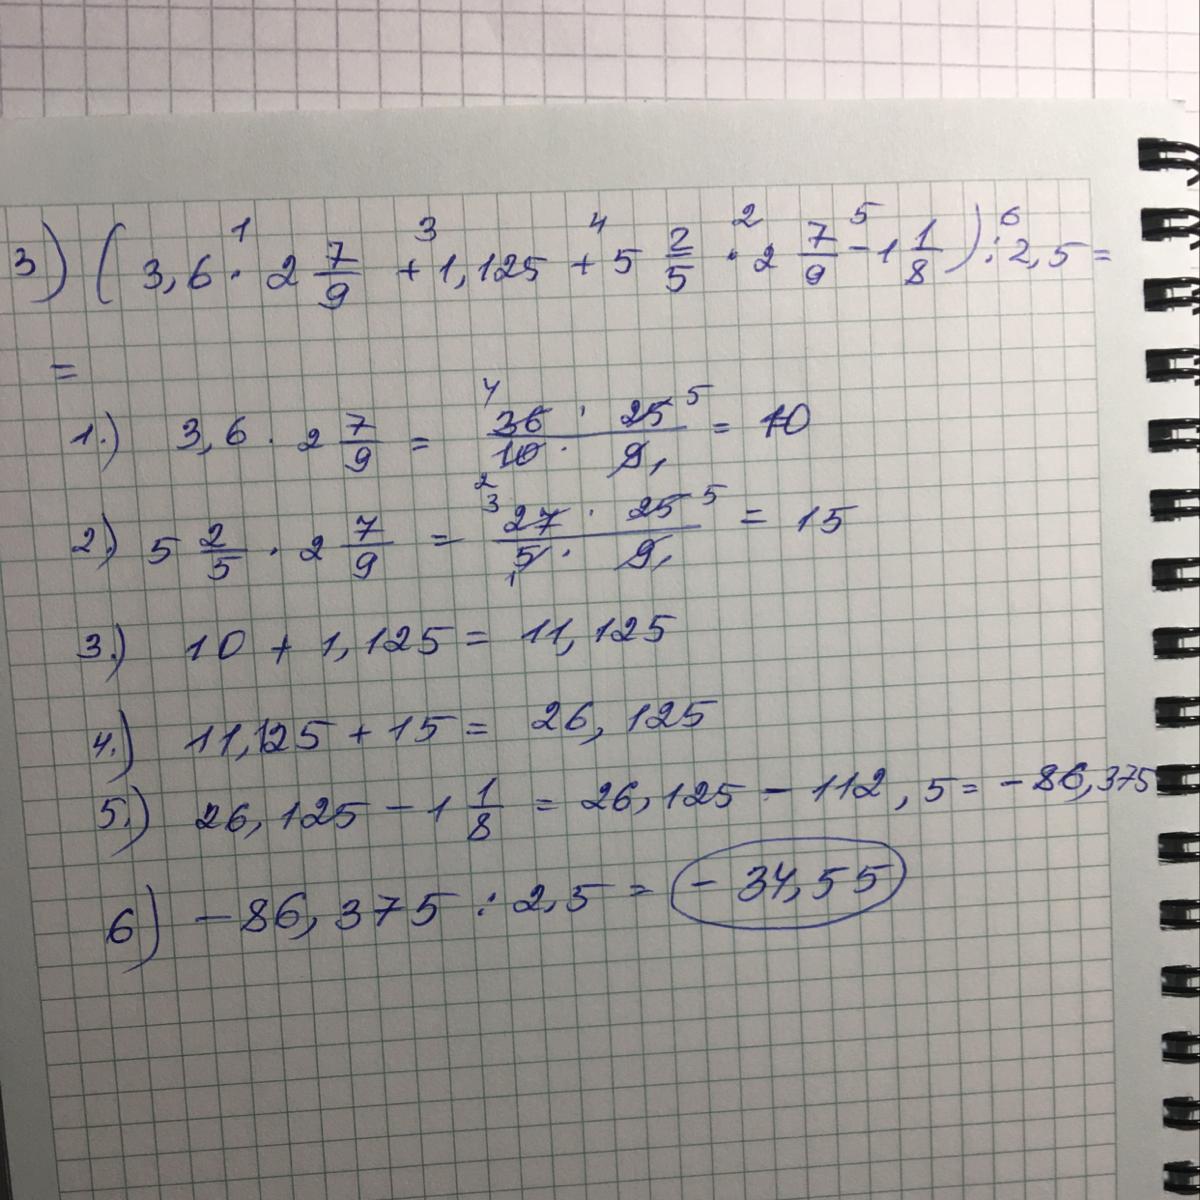 3) (3,6 · 2 7/9 + 1,125 + 5 2/5 · 2 7/9 − 1 1/8) : 2,5 =
=
1.) 3,6 · 2 7/9 = 36 · 25 / 10 · 9 = 10
2.) 5 2/5 · 2 7/9 = 27 · 25 / 5 · 9 = 15
3.) 10 + 1,125 = 11,125
4.) 11,125 + 15 = 26,125
5.) 26,125 − 1 1/8 = 26,125 − 112,5 = − 86,375
6) − 86,375 : 2,5 = − 34,55